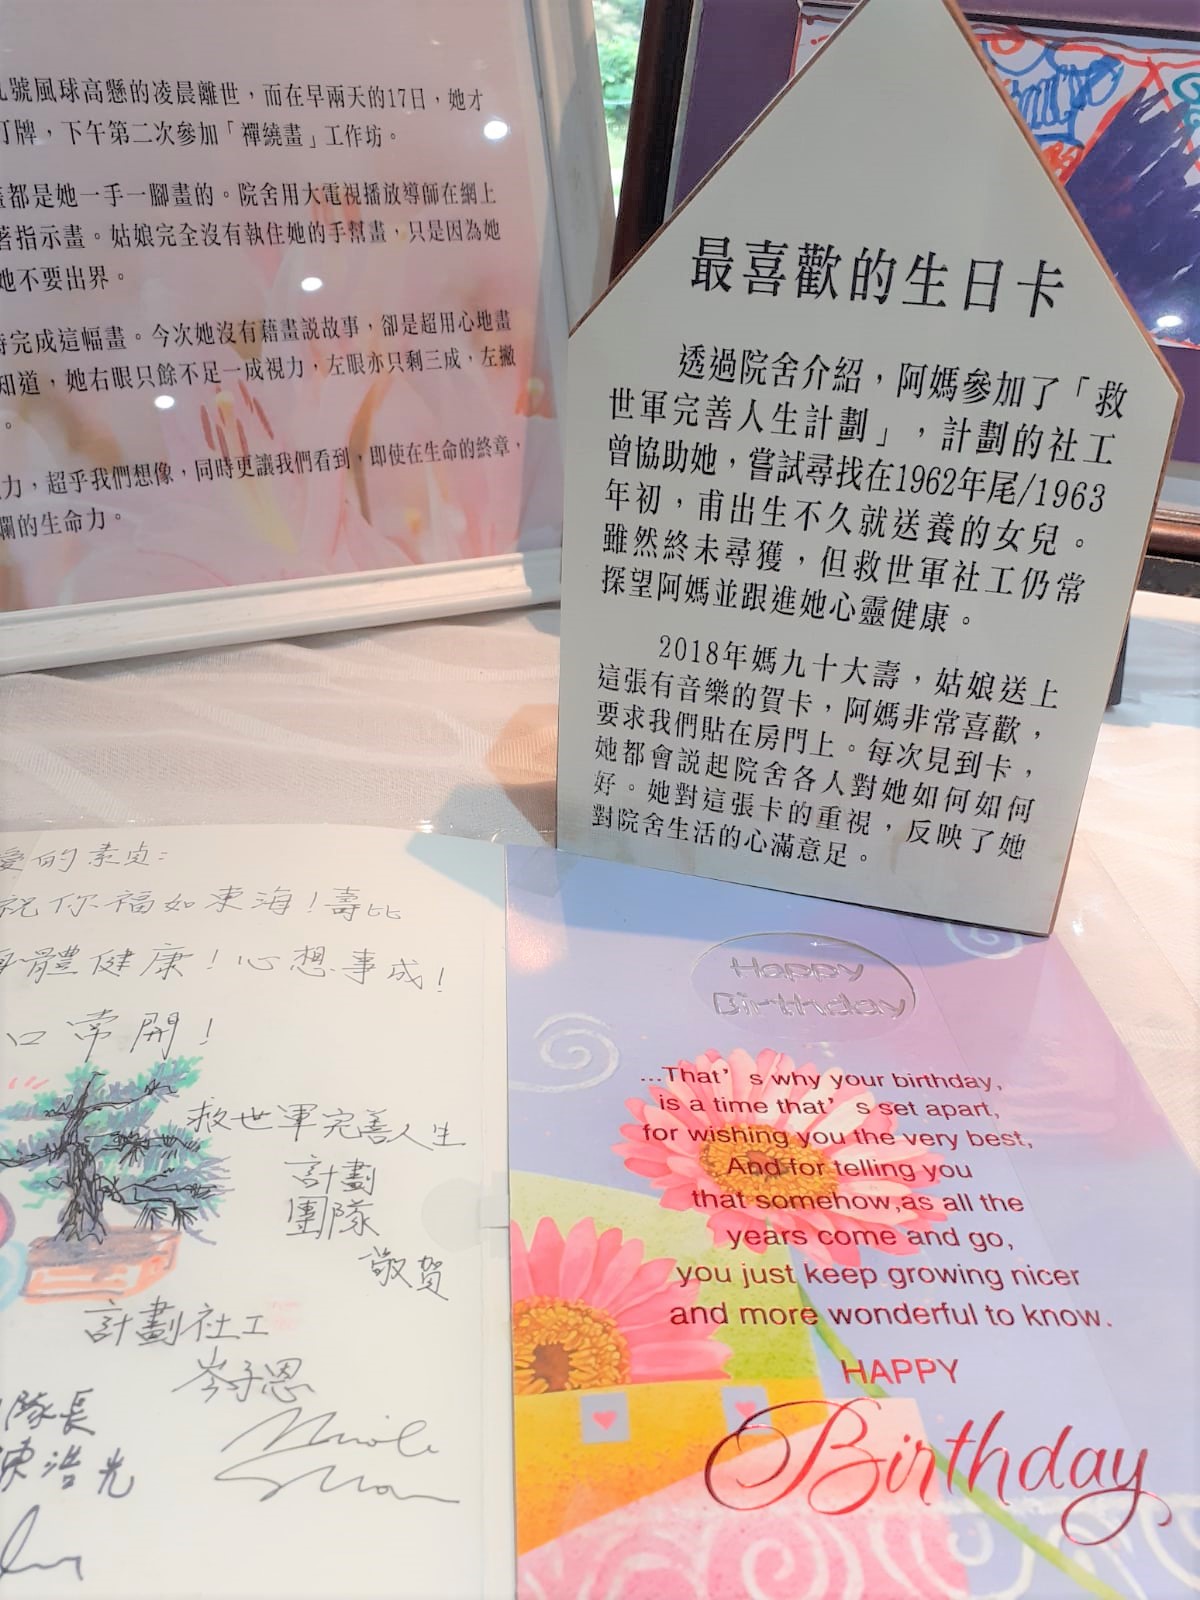 號風球高懸的凌晨離世，而在早兩天的17日，她才
打牌，下午第二次參加「禪繞畫」工作坊。
都是她一手一腳畫的。院舍用大電視播放導師在網上
著指示畫。姑娘完全沒有執住她的手幫畫，只是因為她
她不要出界。
時完成這幅畫。今次她沒有藉畫說故事，卻是超用心地畫
知道，她右眼只餘不足一成視力，左眼亦只剩三成，左撇
。
力，超乎我們想像，同時更讓我們看到，即使在生命的終章，
斕的生命力。
最喜歡的生日卡
透過院舍介紹，阿媽參加了「救
世軍完善人生計劃」，計劃的社工
曾協助她，嘗試尋找在1962年尾/1963
年初，甫出生不久就送養的女兒。
雖然終未尋獲，但救世軍社工仍常
探望阿媽並跟進她心靈健康。
2018年媽九十大壽，姑娘送上
這張有音樂的賀卡，阿媽非常喜歡，
要求我們貼在房門上。每次見到卡，
她都會説起院舍各人對她如何如何
好。她對這張卡的重視，反映了她
對院舍生活的心滿意足。
愛的素貞：
祝你福如東海！壽比
身體健康！心想事成！
口常開！
救世軍完善人生
計劃
團隊
敬賀
計劃社工
岑子恩
隊長
陳浩光
Happy
Birthday
...That's why your birthday,
is a time that's set apart,
for wishing you the very best,
And for telling you
that somehow,as all the
years come and go,
you just keep growing nicer
and more wonderful to know.
HAPPY
Birthday